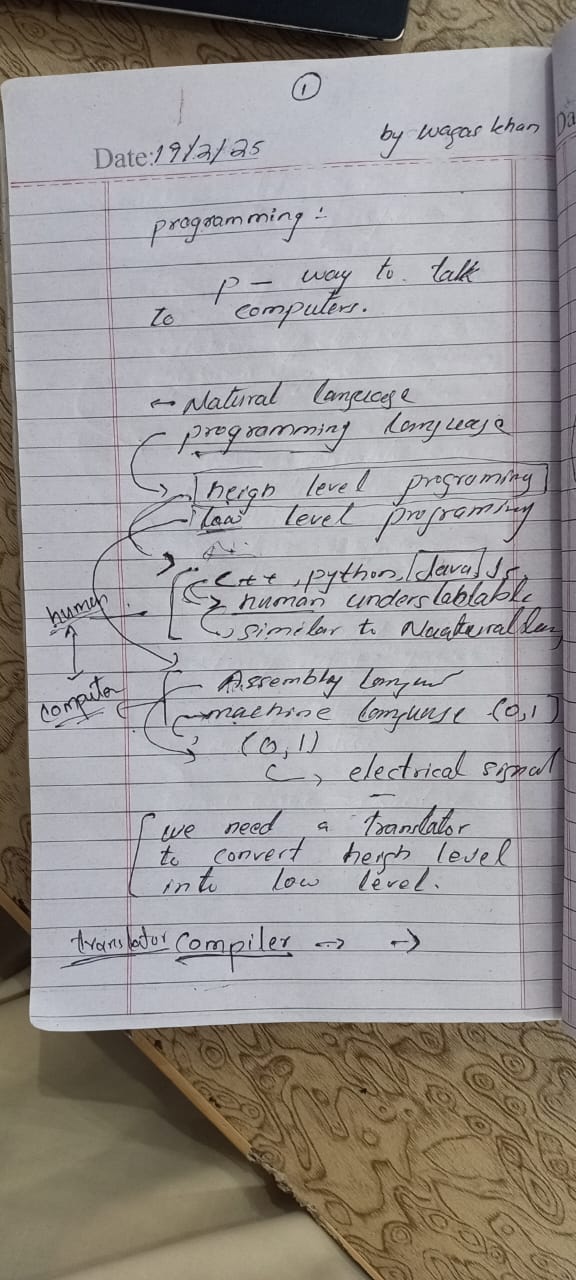 1
by waqas khan
Date: 19/2/25
programming :-
p - way to talk
to computers.
Natural language
programming language
heigh level programing
low level programing
C++, python, [Java] Js
human understablable
similar to Naatural lan
human
Assembly
computer
machine (0,1)
(0,1)
electrical signal
we need a translator
to convert heigh level
into low level.
translator compiler → →